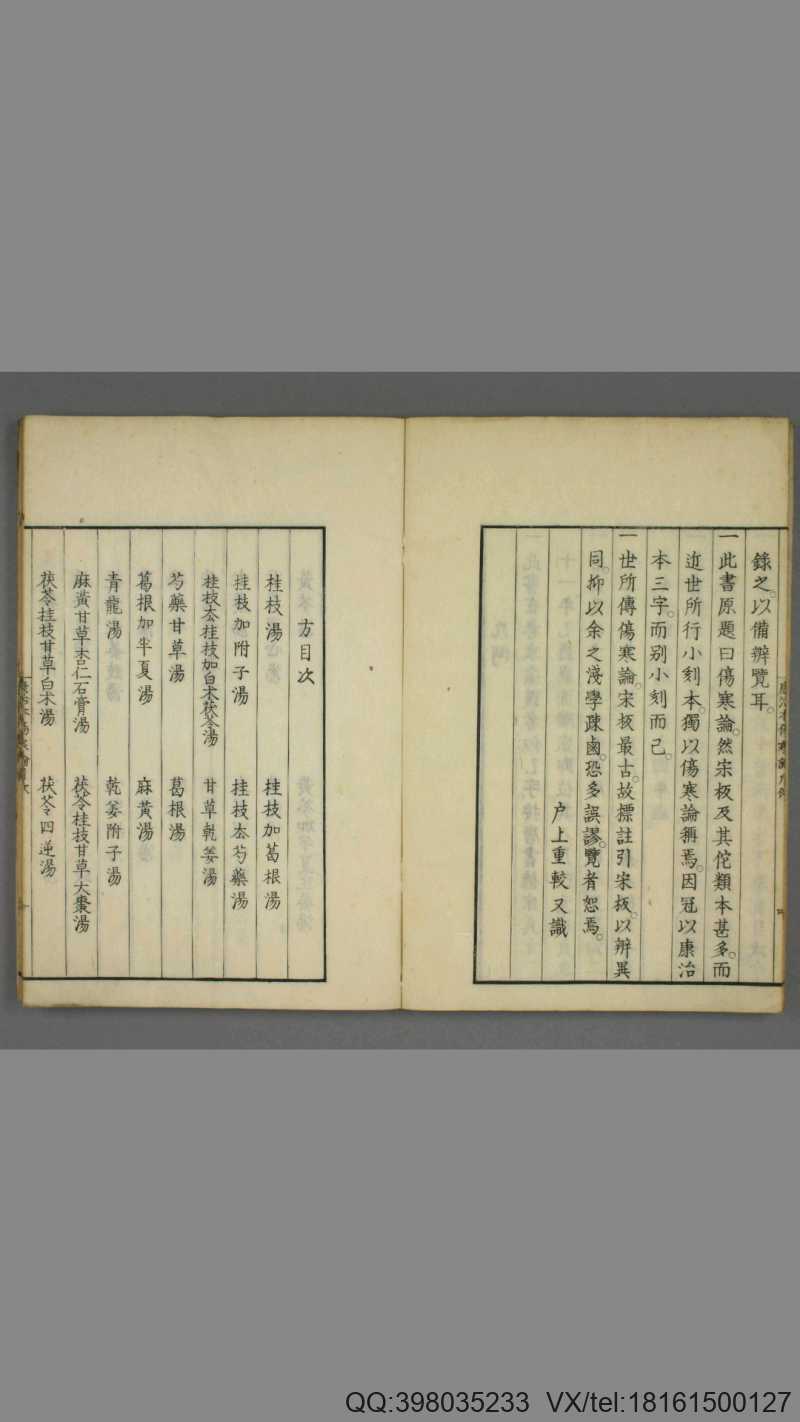 錄之。以備辨覽耳。
一此書原題曰傷寒論。然宋板及其佗類本甚多。而
近世所行小刻本。獨以傷寒論稱焉。因冠以康治
本三字。而別小刻而已。
一世所傳傷寒論。宋板最古。故標註引宋板。以辨異
同。抑以余之淺學疎鹵。恐多誤謬。覽者恕焉。
户上重較又識
方目次
桂枝湯　桂枝加葛根湯
桂枝加附子湯　桂枝去芍藥湯
桂枝去桂枝加白朮茯苓湯　甘草乾姜湯
芍藥甘草湯　葛根湯
葛根加半夏湯　麻黃湯
青龍湯　乾姜附子湯
麻黃甘草杏仁石膏湯　茯苓桂枝甘草大棗湯
茯苓桂枝甘草白朮湯　茯苓四逆湯
QQ:398035233 VX/tel:18161500127